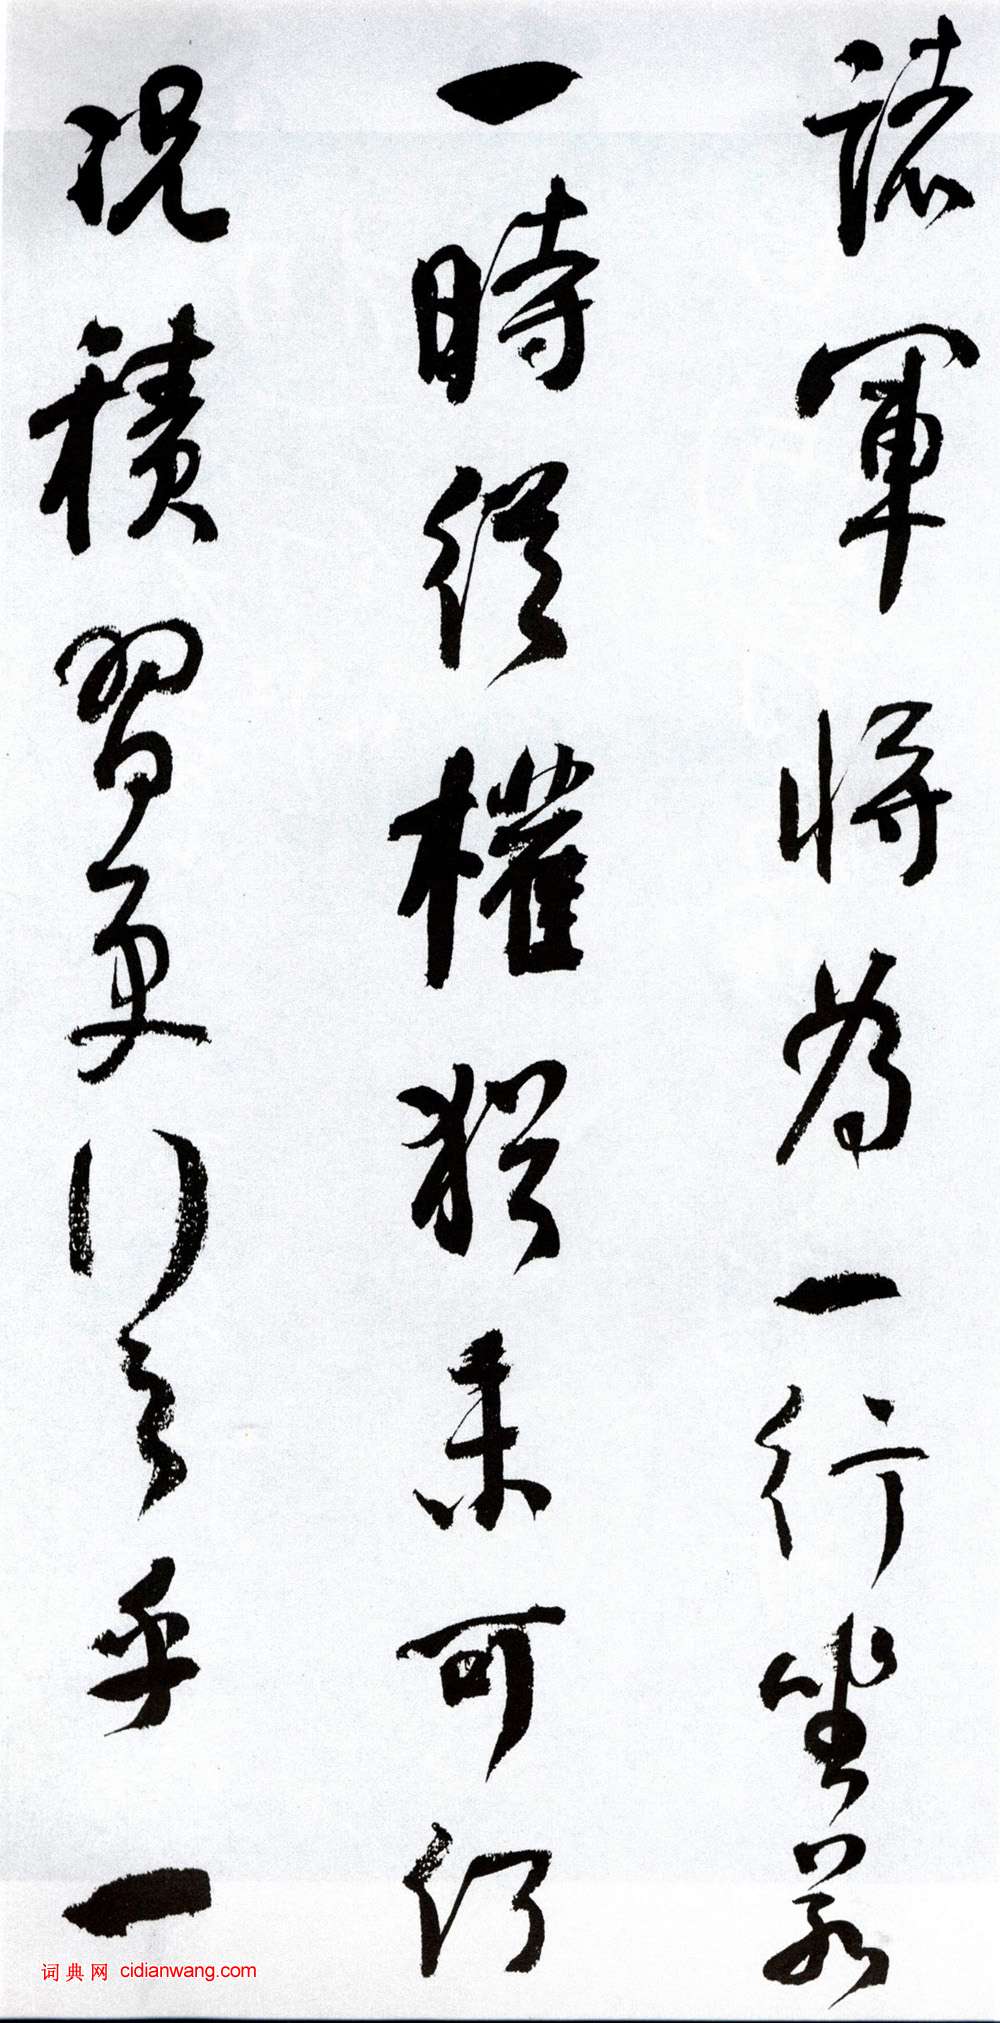 諸軍將為一行坐若
一時從權猶未可何
況積習更行之乎一
词典网 cidianwang.com